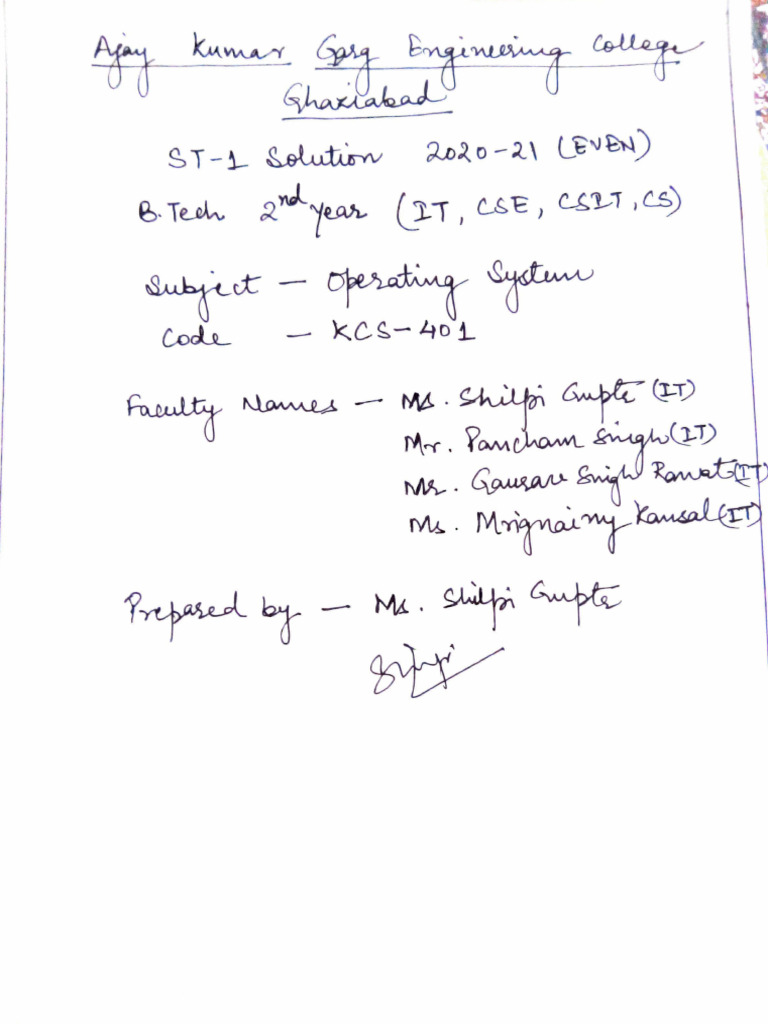 Ajay Kumar Garg Engineering College
Ghaziabad
ST-1 Solution 2020-21 (EVEN)
B.Tech 2nd year (IT, CSE, CSIT, CS)
Subject - Operating System
Code - KCS-401
Faculty Names - Ms. Shilpi Gupta (IT)
Mr. Pancham Singh (IT)
Mr. Gaurav Singh Rawat (IT)
Ms. Mrignainy Kansal (IT)
Prepared by - Ms. Shilpi Gupta